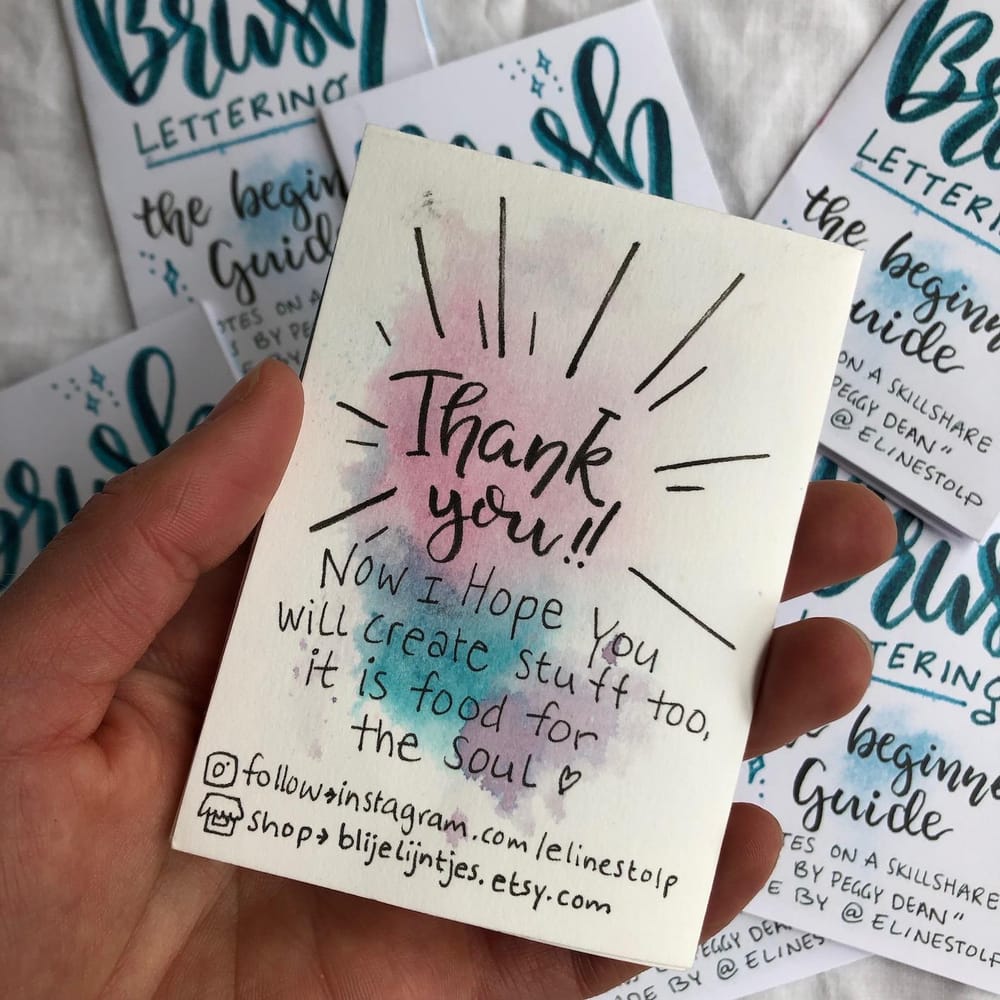 Thank
you!!
Now i Hope you
will create stuff too,
it is food for
the soul ♡
follow→instagram.com/elinestolp
shop→blijelijntjes.etsy.com
Brush
LETTERING
the begin
Guide
BY PE
Brush
LETTERIN
the beginn
Guide
ON A SKILLSHARE
PEGGY DEAN"
@ELINESTOLP
LETTERING
beginne
Guide
ON A SKILLSHARE
BY PEGGY DEAN"
BY @ELINESTOLP
BY @ELINES